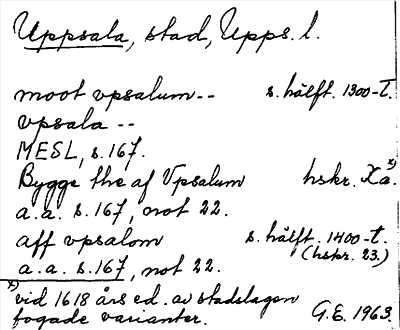 Uppsala, stad, Upps. l.
moot vpsalum-- s. hälft. 1300-t.
vpsala --
MESL, s. 167.
Bygge the af Vpsalum hskr. Xa. x)
a.a. s. 167, not 22.
aff vpsalom s. hälft. 1400-t.
(hskr. 23.)
a.a. s. 167, not 22.
x) vid 1618 års ed. av stadslagen
fogade varianter. G.E. 1963.